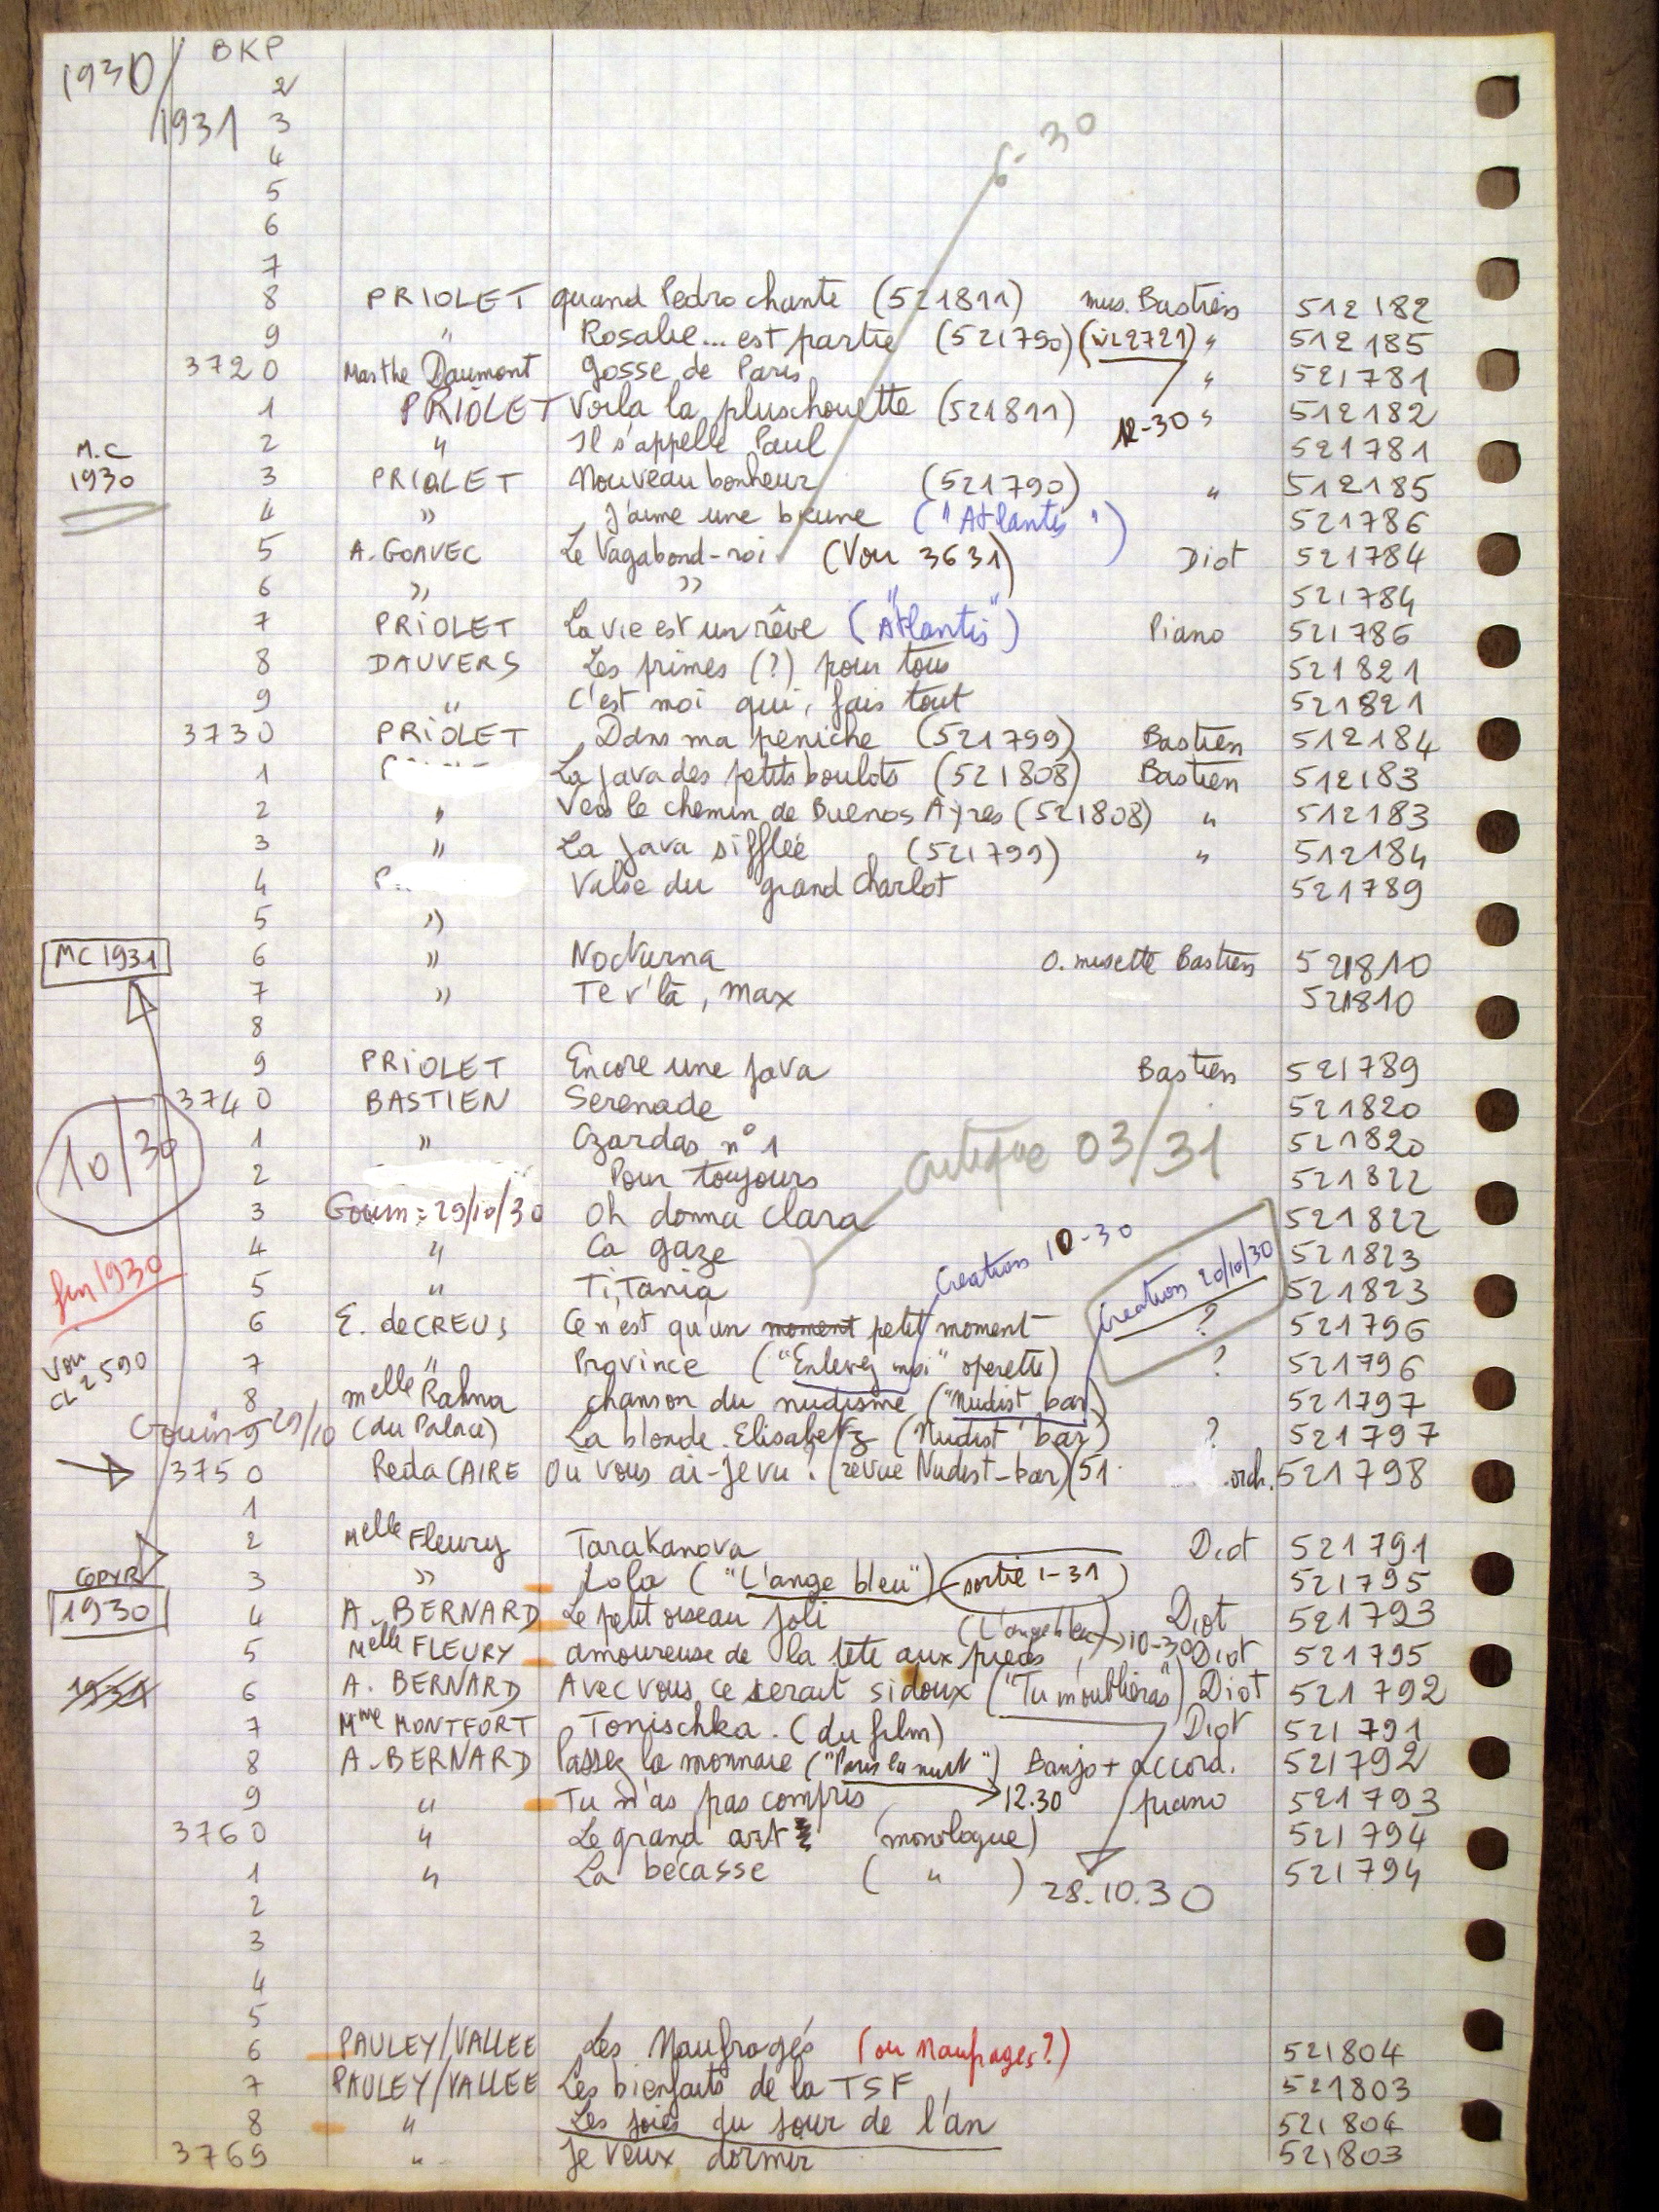 1930/ BKP
2
1931 3
4
5
6-30
6
7
8 PRIOLET quand Pedro chante (521811) mus. Bastien 512182
9 " Rosalie... est partie (521790) (vi 2721) " 512185
3720 Marthe Daumont gosse de Paris " 521781
1 PRIOLET Voila la plus chouette (521811) 12-30 " 512182
M.C 2 " Il s'appelle Paul 521781
1930 3 PRIOLET Nouveau bonheur (521790) " 512185
4 " J'aime une brune ("Atlantis") 521786
5 A. GOAVEC Le Vagabond-roi (Voir 3631) Diot 521784
6 " " 521784
7 PRIOLET La vie est un rêve ("Atlantis") Piano 521786
8 DAUVERS Les primes (?) pour tous 521821
9 " C'est moi qui fais tout 521821
3730 PRIOLET Dans ma peniche (521799) Bastien 512184
1 La java des petits boulots (521808) Bastien 512183
2 " Vers le chemin de Buenos Ayres (521808) " 512183
3 " La java sifflée (521799) " 512184
4 P Valse du grand charlot 521789
5 "
MC 1931 6 " Nocturna O. musette Bastien 521810
7 " Te v'là, max 521810
8
9 PRIOLET Encore une java Bastien 521789
3740 BASTIEN Serenade 521820
10/30 1 " Czardas n° 1 critique 03/31 521820
2 Pour toujours 521822
3 Gouin : 29/10/30 Oh donna clara 521822
4 " Ca gaze Creation 10-30 521823
fin 1930 5 " Titania Creation 20/10/30 521823
6 E. de CREUS Ce n'est qu'un moment petit moment ? 521796
Voir CL 2590 7 " Province ("Enlevez moi" operette) ? 521796
8 Melle Rahna chanson du nudisme ("Nudist bar") 521797
Gouin 9 29/10 (du Palace) La blonde Elisabeth (Nudist bar) ? 521797
3750 Reda CAIRE Où vous ai-je vu ? (revue Nudist-bar) (51 orch. 521798
1
2 Melle Fleury Tarakanova Diot 521791
COPYR 3 " Lola ("L'ange bleu") sortie 1-31 521795
1930 4 A. BERNARD Le petit oiseau joli Diot 521793
5 Melle FLEURY amoureuse de la tete aux pieds (L'ange bleu) 10-30 Diot 521795
1931 6 A. BERNARD Avec vous ce serait si doux ("Tu m'oublieras") Diot 521792
7 Mme MONTFORT Tonischka. (du film) Diot 521791
8 A. BERNARD Passez la monnaie ("Paris la nuit") Banjo + accord. 521792
9 " Tu m'as pas compris 12.30 piano 521793
3760 " Le grand art (monologue) 521794
1 " La bécasse ( " ) 28.10.30 521794
2
3
4
5
6 PAULEY/VALLEE Les Naufragés (ou Naufrages ?) 521804
7 PAULEY/VALLEE Les bienfaits de la TSF 521803
8 " Les joies du jour de l'an 521804
3769 " Je veux dormir 521803